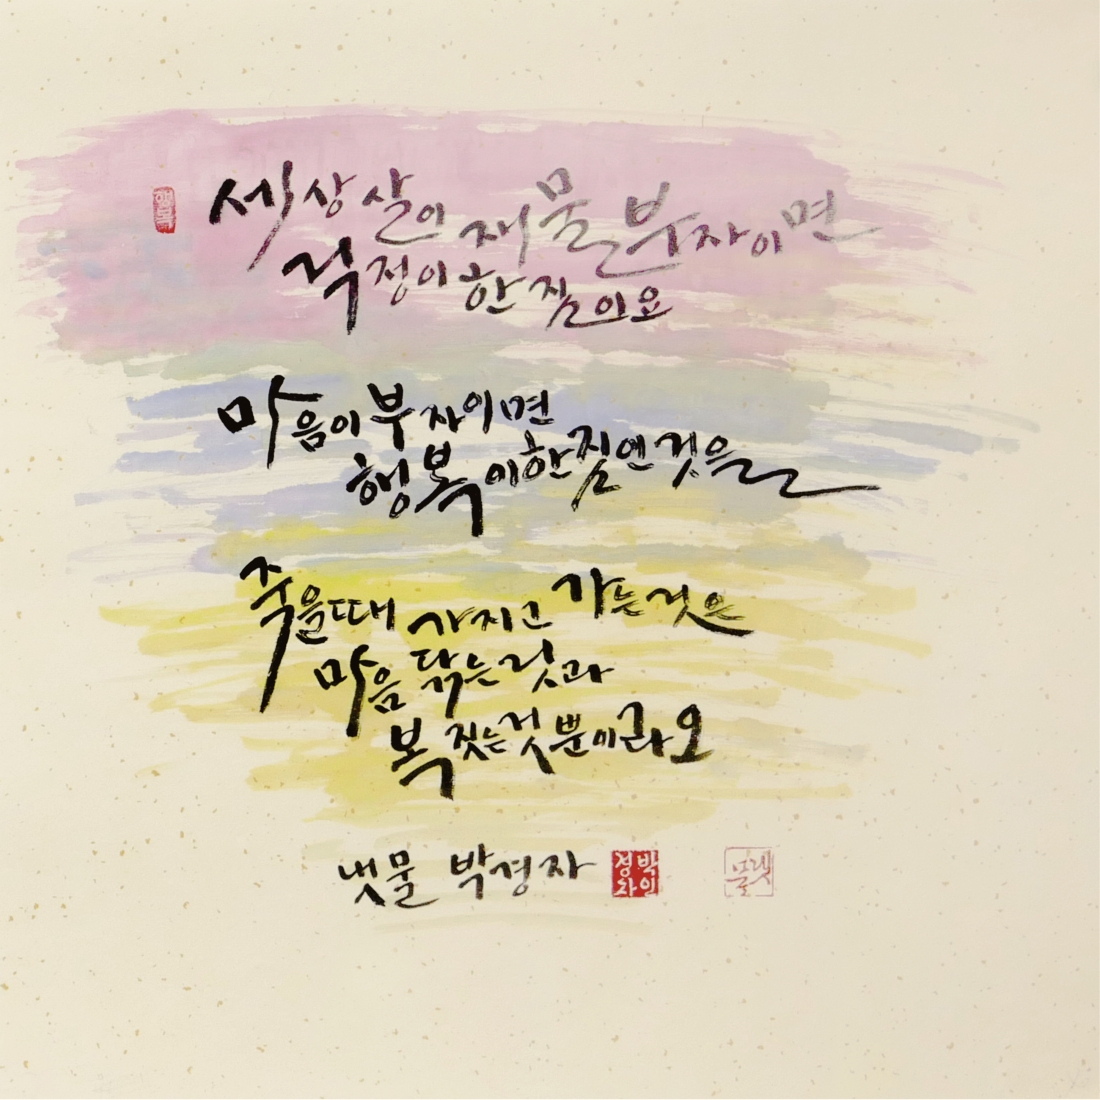 행복
세상살이 재물 부자이면
걱정이 한짐이요
마음이 부자이면
행복이 한짐엔 것을
죽을때 가지고 가는것은
마음 닦는 것과
복 짓는것 뿐이라오
냇물 박경자
박경자인
냇물